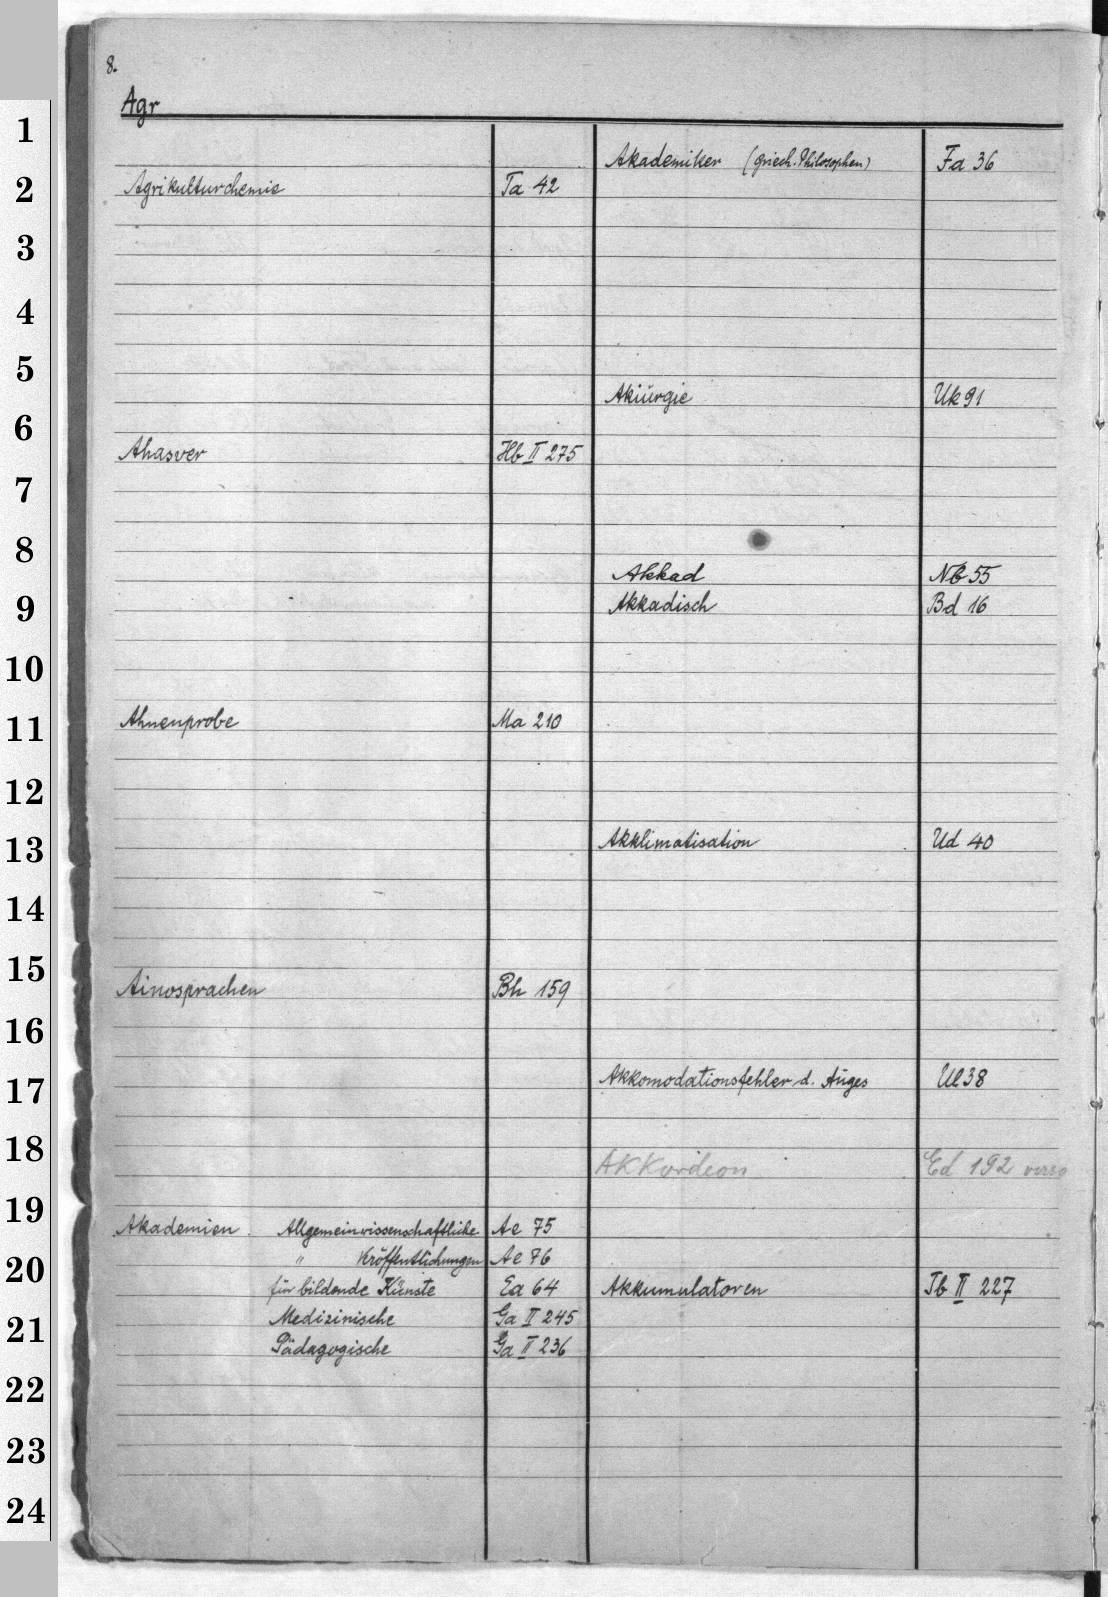 8.
Agr
Agrikulturchemie Ta 42
Ahasver Hb II 275
Ahnenprobe Ma 210
Ainosprachen Bh 159
Akademien. Allgemeinwissenschaftliche Ae 75
" Veröffentlichungen Ae 76
für bildende Künste Ea 64
Medizinische Ga II 245
Pädagogische Ga II 236
Akademiker (griech. Philosophen) Fa 36
Akiurgie Uk 91
Akkad Nb 55
Akkadisch Bd 16
Akklimatisation Ud 40
Akkomodationsfehler d. Auges Ul 38
Akkordeon Ed 192 verso
Akkumulatoren Tb II 227
1
2
3
4
5
6
7
8
9
10
11
12
13
14
15
16
17
18
19
20
21
22
23
24